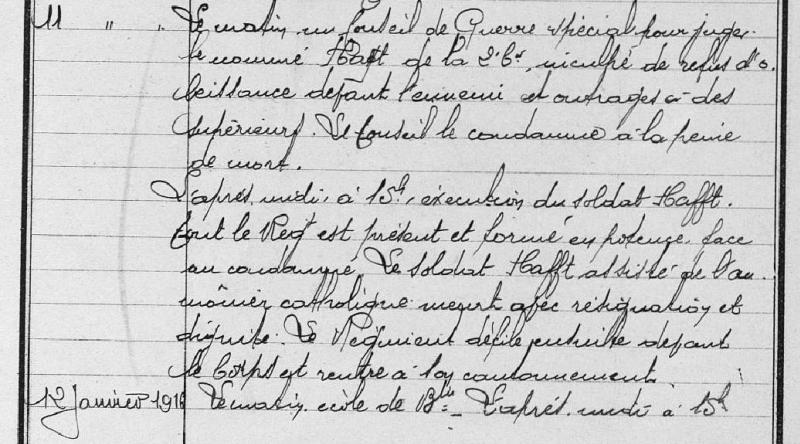 11 " " Le matin, un Conseil de Guerre spécial pour juger
le nommé Hafft de la 2e Cie, inculpé de refus d'o-
béissance devant l'ennemi et outrages à des
supérieurs. Le Conseil le condamne à la peine
de mort.
L'après-midi, à 15h, exécution du soldat Hafft.
Tout le Régt est présent et formé en potence, face
au condamné. Le soldat Hafft assisté de l'au-
mônier catholique meurt avec résignation et
dignité. Le Régiment défile ensuite devant
le Corps et rentre à son cantonnement.
12 Janvier 1916 Le matin, école de Bie. L'après-midi à 15h